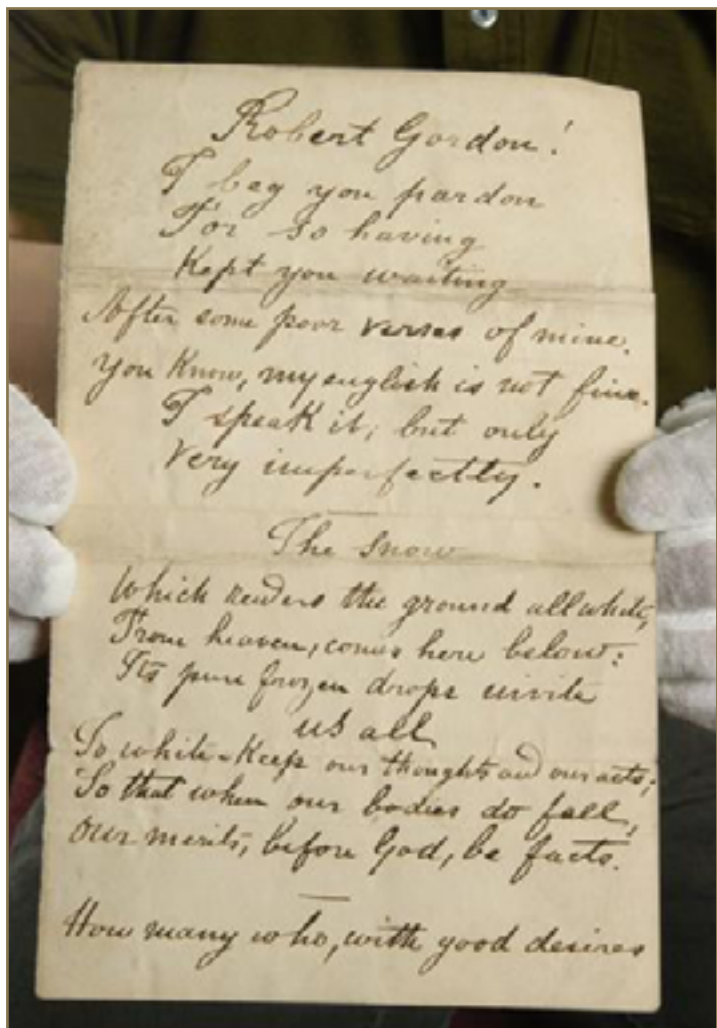 Robert Gordon!
I beg you pardon
For so having
Kept you waiting
After some poor verses of mine.
You know, my english is not fine.
I speak it; but only
very imperfectly.
The snow
Which renders the ground all white,
From heaven, comes here below:
Its pure frozen drops invite
us all
To white-keep our thoughts and our acts;
So that when our bodies do fall,
our merits, before God, be facts.
How many who, with good desires